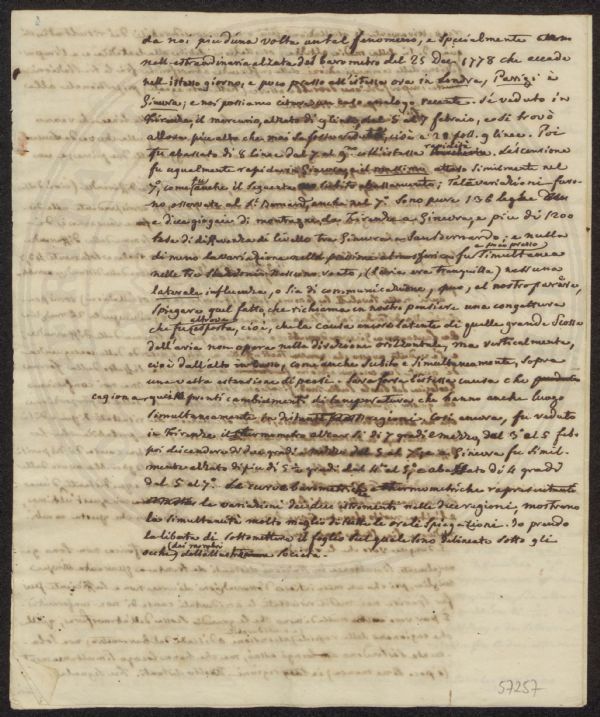 da noi più d'una volta un tal fenomeno, e specialmente
nell'estraordinaria alzata del barometro del 25 Dec. 1778 che accade
nell'istesso giorno, e poco presso all'istessa ora in Londra, Parigi e
Ginevra; e noi possiamo citare un caso analogo recente. Si è veduto in
Firenze il mercurio alzato di 9 linee dal 5 al 7 febraio, e si trovò
allora più alto che mai fosse veduto, cioè a 28 poll. 9 linee. Poi
fu abassato di 8 linee dal 7 al 9 coll'istessa rapidità. L'ascensione
fu egualmente rapida in Ginevra, e il massimo simil nel
7°, come fu anche il seguente abassamento; Tale variazioni furo-
no osservate al S. Bernard, anche nel 7°. Sono pure 136 leghe
e dieci giogaie di montagne da Firenze a Ginevra, e più di 1200
tese di differenza di livello tra Ginevra e San Bernardo; e nulla
di meno la variazione nella pressione atmosferica fu simultanea e poco presso
nelle tre stazioni. Nessuno vento, (l'aria era tranquilla) nessuna
laterale influenza, o sia di communicazione, può, al nostro parere,
spiegare quel fatto, che richiama in nostro pensiere una congettura
che fu altrove esposta, cioè, che la causa ancora latente di quelle grande scosse
dell'aria non opera nella direzione orizzontale, ma verticalmente,
cioè dall'alto in basso, come anche subito e simultaneamente, sopra
una vasta estensione di paesi. Sarà forse l'istessa causa che
cagiona quelli pronti cambiamenti di temperatura che hanno anche luogo
simultaneamente in distanti regioni. Così ancora, fu veduto
in Firenze il termometro alzarsi di 7 gradi e mezzo, dal 3° al 5 feb.
poi discendere di due gradi e mezzo dal 5 al 7, e a Ginevra fu simil-
mente alzato di più di 5 gradi dal 4° al 5, e abassato di 4 gradi
dal 5 al 7°. Le curve barometriche e thermometriche rapresentanti
le variazioni dei due istromenti nelle due regioni, mostrano
la simultaneità molto meglio di tutte le orali spiegazioni. Io prendo
la libertà di sottomettere il foglio sul quale sono delineate sotto gli
occhi dei membri della Società.
57257